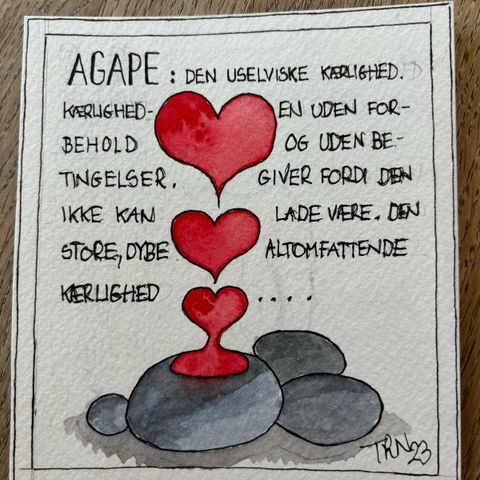 AGAPE : DEN USELVISKE KÆRLIGHED.
KÆRLIGHED- EN UDEN FOR-
BEHOLD OG UDEN BE-
TINGELSER. GIVER FORDI DEN
IKKE KAN LADE VÆRE. DEN
STORE, DYBE ALTOMFATTENDE
KÆRLIGHED ....
TRN 23